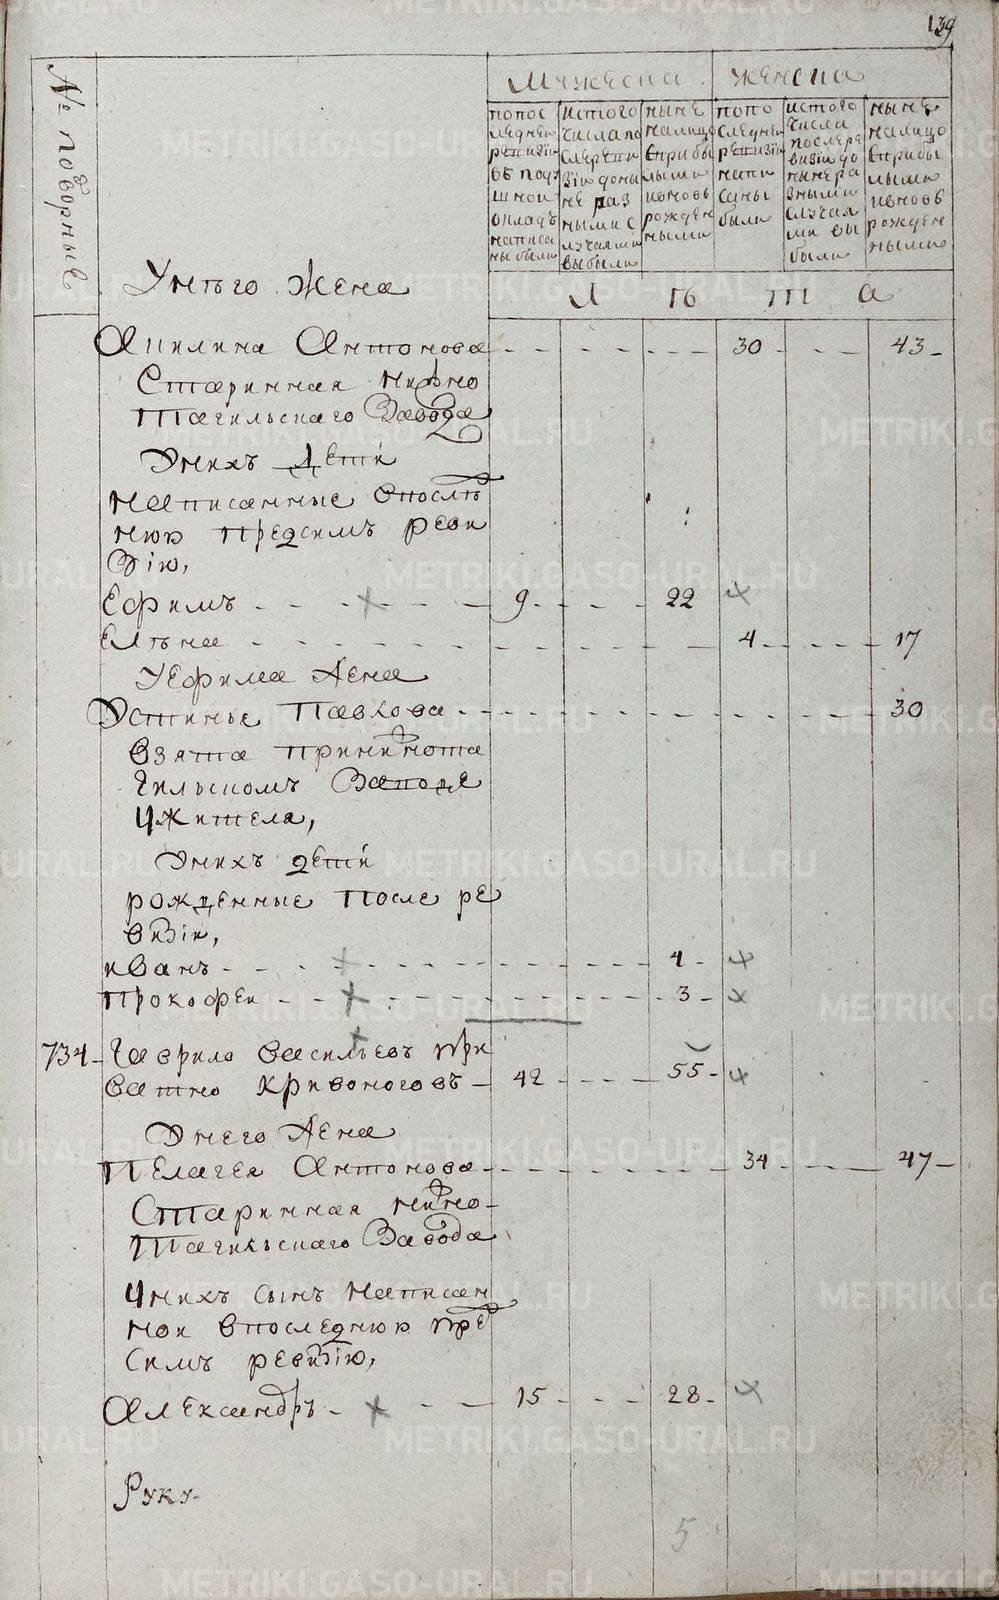 139
№ подворные
Мужеска
женска
попос
леднеи
ревизіи
въ поду
шнои
окладъ
написа
ны были
истого
числа по
слереви
зіи доны
не раз
ными с
лучаями
выбыли
ныне
налицо
сприбы
лыми
ивновь
рожден
ными
попо
следнеи
ревизіи
напи
саны
были
истого
числа
послере
визіи до
ныне ра
зными
случая
ми вы
были
ныне
налицо
сприбы
лыми
ивновь
рожден
ными
Л ѣ т а
Унѣго жена
Акилина Антонова 30 43
Старинная нижно
тагильскаго завода
Унихъ дети
написанные впослѣд
нюю предсимъ реви
зію,
Ефимъ 9 22
Елѣна 4 17
Уефима жена
Устинья Павлова 30
взята принижнота
гильскомъ заводе
ужителя,
Унихъ дети
рожденные после ре
визіи,
иванъ 4
Прокофеи 3
734 Гаврило васильевъ при
ватно кривоноговъ 42 55
Унего жена
Пелагея Антонова 34 47
Старинная нижно
тагильскаго завода
Унихъ сынъ написан
нои впоследнюю пред
симъ ревизію,
Александръ 15 28
Руку
5
METRIKI.GASO-URAL.RU